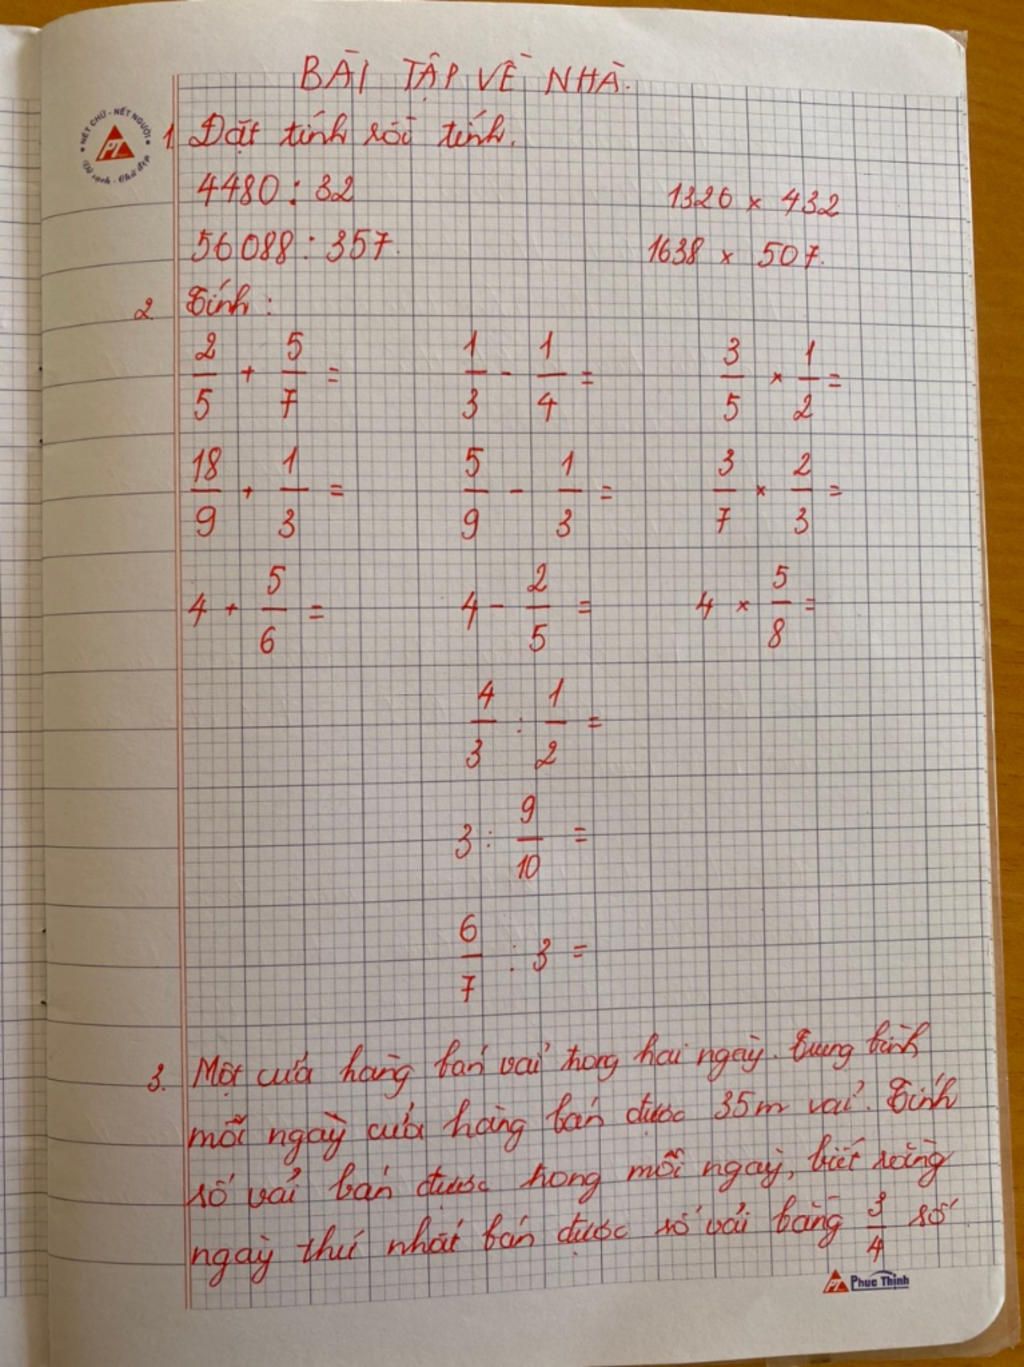 BÀI TẬP VỀ NHÀ.
NÉT CHỮ - NẾT NGƯỜI
PT
1. Đặt tính rồi tính.
4480 : 32    1326 × 432
56088 : 357.    1638 × 507.
2. Tính :
2/5 + 5/7 =    1/3 - 1/4 =    3/5 × 1/2 =
18/9 + 1/3 =    5/9 - 1/3 =    3/7 × 2/3 =
4 + 5/6 =    4 - 2/5 =    4 × 5/8 =
4/3 : 1/2 =
3 : 9/10 =
6/7 : 3 =
3. Một cửa hàng bán vải trong hai ngày. Trung bình
mỗi ngày cửa hàng bán được 35m vải. Tính
số vải bán được trong mỗi ngày, biết rằng
ngày thứ nhất bán được số vải bằng 3/4 số
PT Phuc Thinh